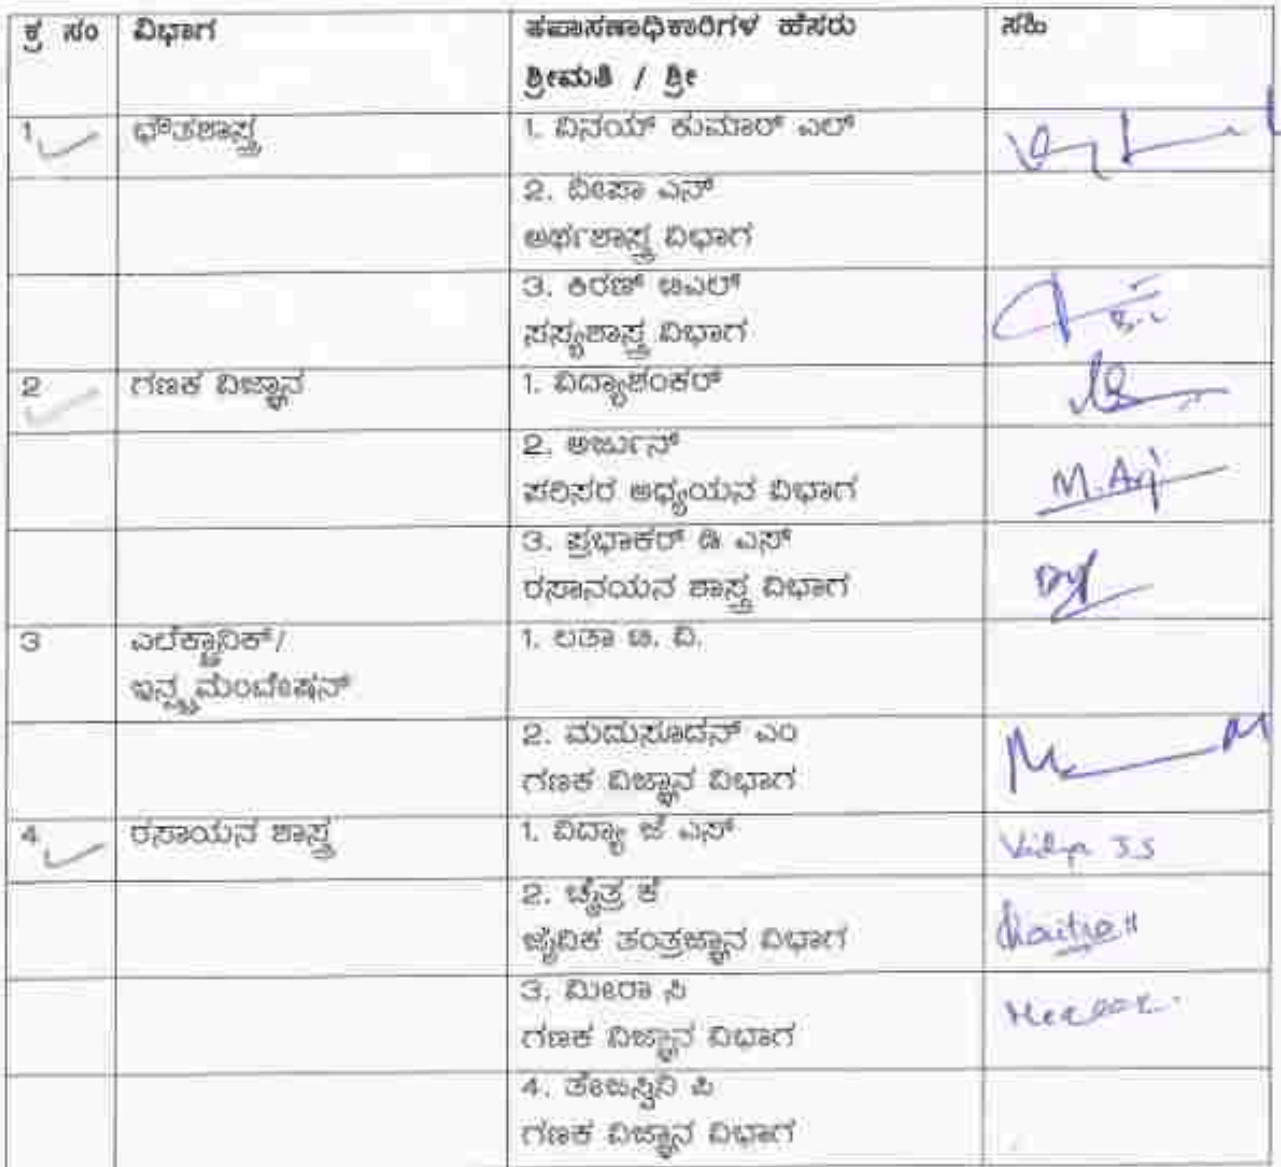 ಕ್ರ ಸಂ ವಿಭಾಗ ತಪಾಸಣಾಧಿಕಾರಿಗಳ ಹೆಸರು ಸಹಿ
ಶ್ರೀಮತಿ / ಶ್ರೀ
1 ಭೌತಶಾಸ್ತ್ರ 1. ವಿನಯ್ ಕುಮಾರ್ ಎಲ್
2. ದೀಪಾ ಎನ್
ಅರ್ಥಶಾಸ್ತ್ರ ವಿಭಾಗ
3. ಕಿರಣ್ ಬಿಎಲ್
ಸಸ್ಯಶಾಸ್ತ್ರ ವಿಭಾಗ
2 ಗಣಕ ವಿಜ್ಞಾನ 1. ವಿದ್ಯಾಶಂಕರ್
2. ಅರ್ಜುನ್
ಪರಿಸರ ಅಧ್ಯಯನ ವಿಭಾಗ M. Arj
3. ಪ್ರಭಾಕರ್ ಡಿ ಎಸ್
ರಸಾನಯನ ಶಾಸ್ತ್ರ ವಿಭಾಗ
3 ಎಲೆಕ್ಟ್ರಾನಿಕ್/ 1. ಲತಾ ಟಿ. ವಿ.
ಇನ್ಸ್ಟ್ರಮೆಂಟೇಷನ್
2. ಮದುಸೂದನ್ ಎಂ
ಗಣಕ ವಿಜ್ಞಾನ ವಿಭಾಗ
4 ರಸಾಯನ ಶಾಸ್ತ್ರ 1. ವಿದ್ಯಾ ಜೆ ಎಸ್ Vidya J S
2. ಚೈತ್ರ ಕೆ
ಜೈವಿಕ ತಂತ್ರಜ್ಞಾನ ವಿಭಾಗ Chaitra
3. ಮೀರಾ ಸಿ
ಗಣಕ ವಿಜ್ಞಾನ ವಿಭಾಗ
4. ತೇಜಸ್ವಿನಿ ಪಿ
ಗಣಕ ವಿಜ್ಞಾನ ವಿಭಾಗ